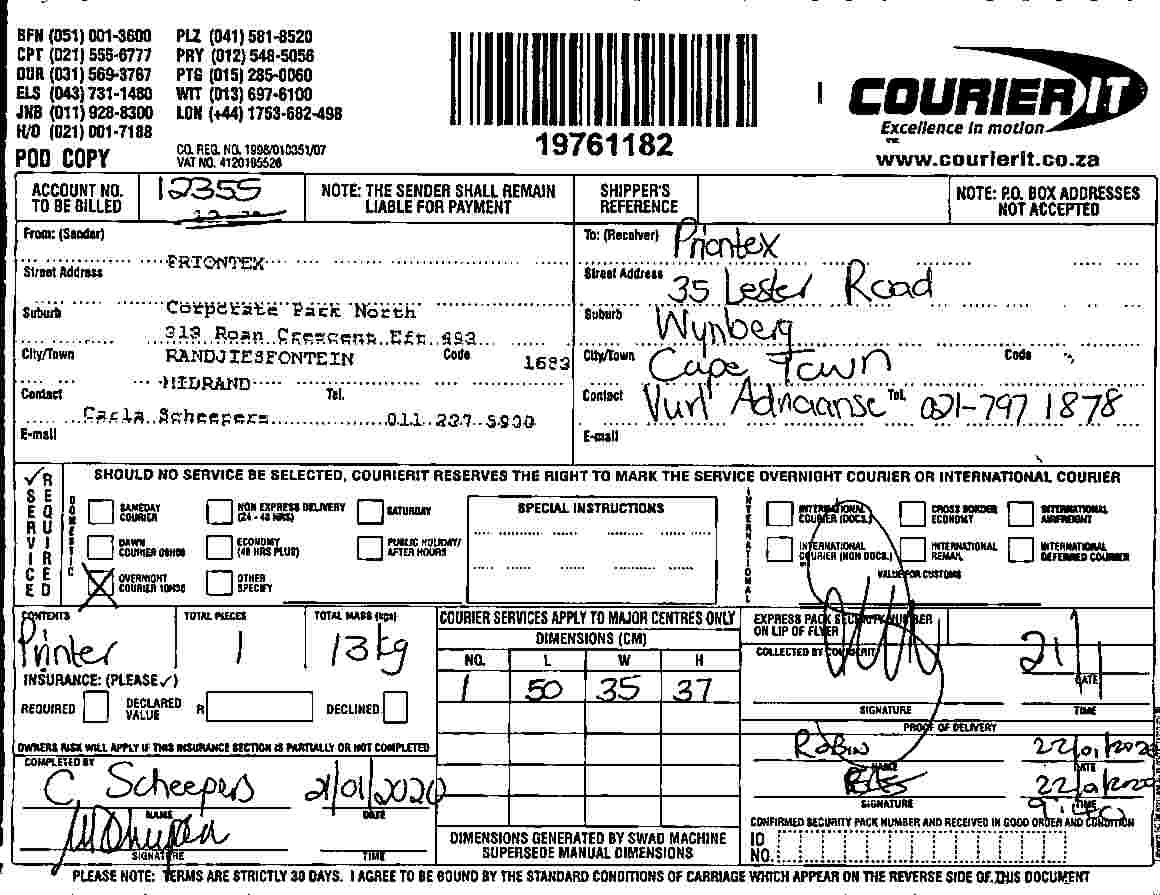 BFN (051) 001-3600 PLZ (041) 581-8520
CPT (021) 555-6777 PRY (012) 548-5056
DUR (031) 569-3767 PTG (015) 285-0060
ELS (043) 731-1480 WIT (013) 697-6100
JNB (011) 928-8300 LON (+44) 1753-682-498
H/O (021) 001-7188
POD COPY
CO. REG. NO. 1998/010351/07
VAT NO. 4120185526
19761182
COURIER IT
Excellence in motion
www.courierit.co.za
ACCOUNT NO. TO BE BILLED
12355
NOTE: THE SENDER SHALL REMAIN LIABLE FOR PAYMENT
SHIPPER'S REFERENCE
NOTE: P.O. BOX ADDRESSES NOT ACCEPTED
From: (Sender)
PRIONTEX
Street Address
Suburb
Corporate Park North
319 Roan Crescent Eft 693
City/Town
RANDJIESFONTEIN
Code
1683
MIDRAND
Contact
Tel.
Carla Scheepers 011 237 5900
E-mail
To: (Receiver) Priontex
Street Address 35 Lester Road
Suburb Wynberg
City/Town Cape Town Code
Contact Adriaanse Tel. 021-797 1878
E-mail
✓ SERVICE REQUIRED
SHOULD NO SERVICE BE SELECTED, COURIERIT RESERVES THE RIGHT TO MARK THE SERVICE OVERNIGHT COURIER OR INTERNATIONAL COURIER
DOMESTIC
SAMEDAY COURIER
NON EXPRESS DELIVERY (24 - 48 HRS)
SATURDAY
DAWN COURIER 08H00
ECONOMY (48 HRS PLUS)
PUBLIC HOLIDAY/ AFTER HOURS
OVERNIGHT COURIER 10H30
OTHER SPECIFY
SPECIAL INSTRUCTIONS
INTERNATIONAL
INTERNATIONAL COURIER (DOCS.)
CROSS BORDER ECONOMY
INTERNATIONAL AIRFREIGHT
INTERNATIONAL COURIER (NON DOCS.)
INTERNATIONAL REMAIL
INTERNATIONAL DEFERRED COURIER
VALUE FOR CUSTOMS
CONTENTS
Printer
TOTAL PIECES
1
TOTAL MASS (kgs)
13kg
INSURANCE: (PLEASE ✓)
REQUIRED
DECLARED VALUE
R
DECLINED
OWNERS RISK WILL APPLY IF THIS INSURANCE SECTION IS PARTIALLY OR NOT COMPLETED
COURIER SERVICES APPLY TO MAJOR CENTRES ONLY
DIMENSIONS (CM)
NO. L W H
1 50 35 37
DIMENSIONS GENERATED BY SWAD MACHINE
SUPERSEDE MANUAL DIMENSIONS
EXPRESS PACK SECURITY NUMBER
ON LIP OF FLYER
COLLECTED BY COURIERIT
21/1
DATE
SIGNATURE
TIME
PROOF OF DELIVERY
Robin
NAME
DATE
SIGNATURE
TIME
CONFIRMED SECURITY PACK NUMBER AND RECEIVED IN GOOD ORDER AND CONDITION
ID NO.
COMPLETED BY
C. Scheepers 21/01/2020
NAME
DATE
SIGNATURE
TIME
PLEASE NOTE: TERMS ARE STRICTLY 30 DAYS. I AGREE TO BE BOUND BY THE STANDARD CONDITIONS OF CARRIAGE WHICH APPEAR ON THE REVERSE SIDE OF THIS DOCUMENT